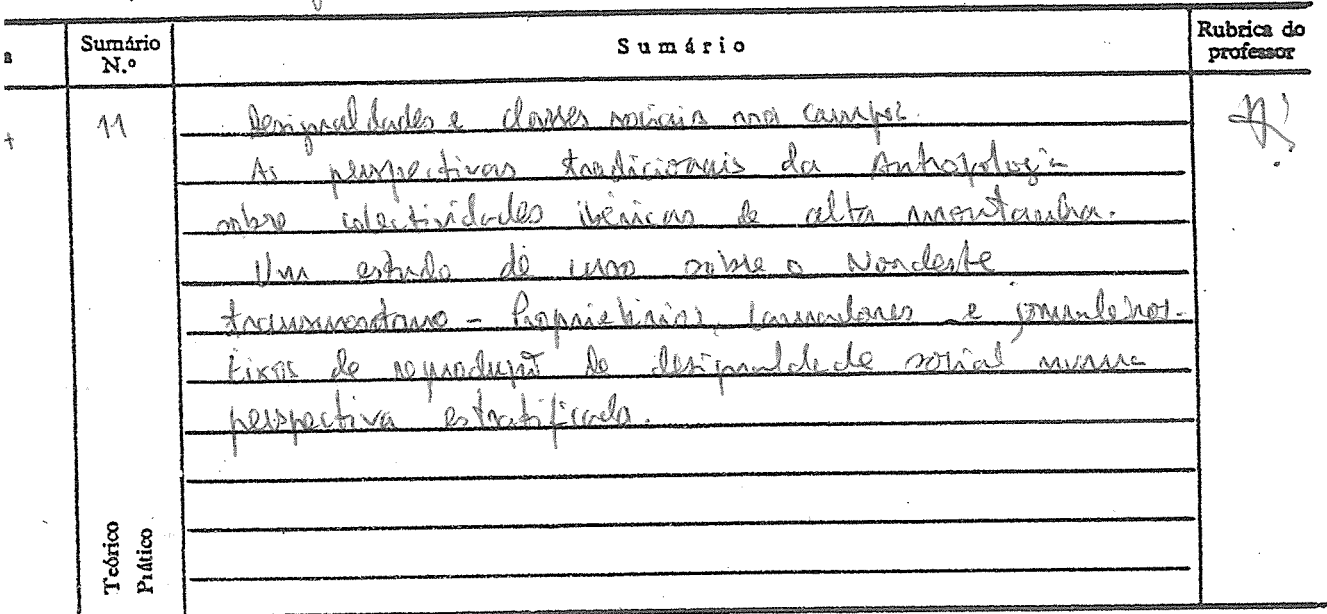 a
Sumário N.º
Sumário
Rubrica do professor
t
11
Desigualdades e classes sociais nos campos.
As perspectivas tradicionais da Antropologia
sobre colectividades ibéricas de alta montanha.
Um estudo de caso sobre o Nordeste
transmontano - Proprietários, lavradores e jornaleiros.
Eixos de reprodução de desigualdade social numa
perspectiva estratificada.
Teórico
Prático